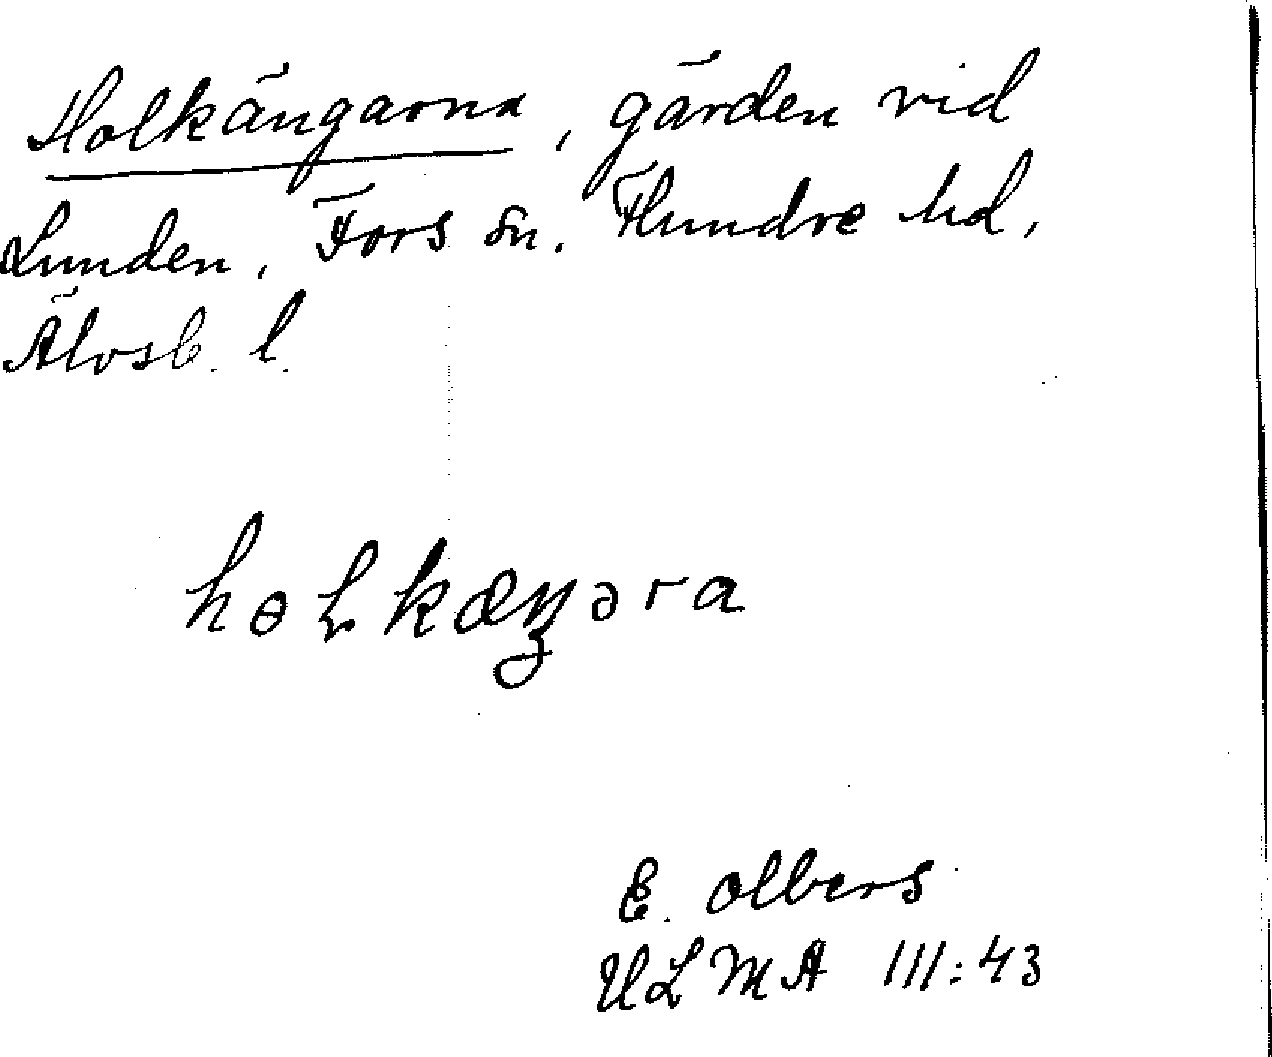 Holkängarna, gärden vid
Lunden, Fors sn. Flundre hd,
Älvsb. l.
hɵⱢkæŋəra
E. Olbers
ULMA III:43